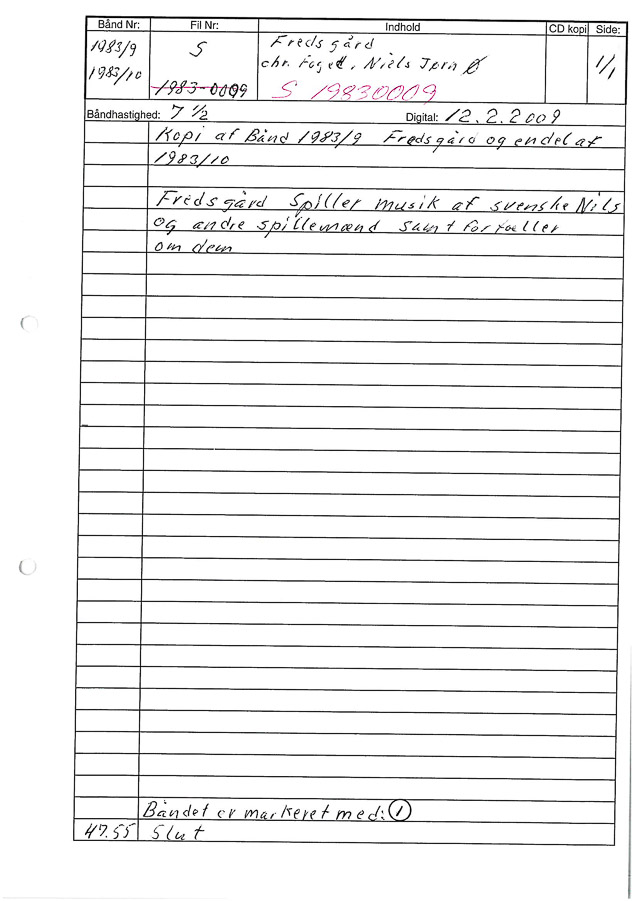 Bånd Nr: Fil Nr: Indhold CD kopi Side:
1983/9 S Fredsgård 1/1
1983/10 chr. Foged, Niels Jørn Ø
1983-0009 S 19830009
Båndhastighed: 7 1/2 Digital: 12.2.2009
Kopi af Bånd 1983/9 Fredsgård og endel af
1983/10
Fredsgård spiller musik af svenske Nils
og andre spillemænd samt fortæller
om dem
Båndet er markeret med: 1
47.55 Slut